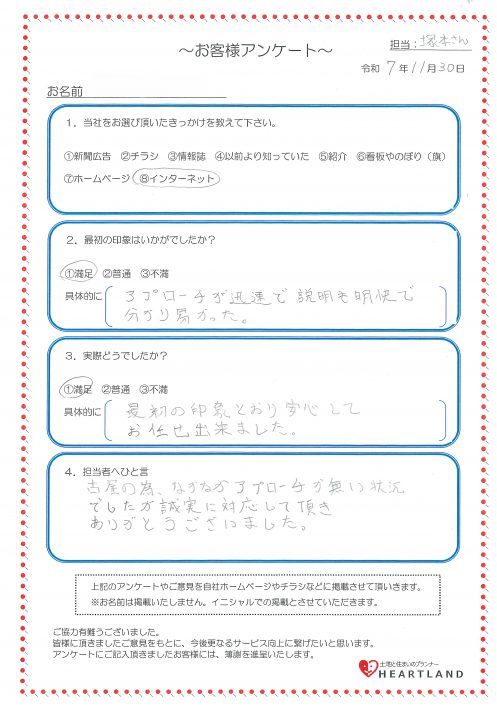 ～お客様アンケート～
担当：塚本さん
令和 7年11月30日
お名前
1．当社をお選び頂いたきっかけを教えて下さい。
①新聞広告 ②チラシ ③情報誌 ④以前より知っていた ⑤紹介 ⑥看板やのぼり（旗）
⑦ホームページ ⑧インターネット
2．最初の印象はいかがでしたか？
①満足 ②普通 ③不満
具体的に アプローチが迅速で説明も明快で
分かり易かった。
3．実際どうでしたか？
①満足 ②普通 ③不満
具体的に 最初の印象とおり安心して
お任せ出来ました。
4．担当者へひと言
古屋の為、なかなかアプローチが無い状況
でしたが誠実に対応して頂き
ありがとうございました。
上記のアンケートやご意見を自社ホームページやチラシなどに掲載させて頂いきます。
※お名前は掲載いたしません。イニシャルでの掲載とさせていただきます。
ご協力有難うございました。
皆様に頂きましたご意見をもとに、今後更なるサービス向上に繋げたいと思います。
アンケートにご記入頂きましたお客様には、薄謝を進呈いたします。
土地と住まいのプランナー
HEARTLAND